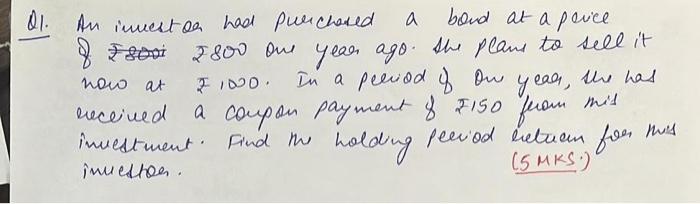 Q1. An investor had purchased a bond at a price
of ₹800 ₹800 one year ago. She plans to sell it
now at ₹1000. In a period of one year, she has
received a coupon payment of ₹150 from this
investment. Find the holding period return for this
investor. (5 MKS.)